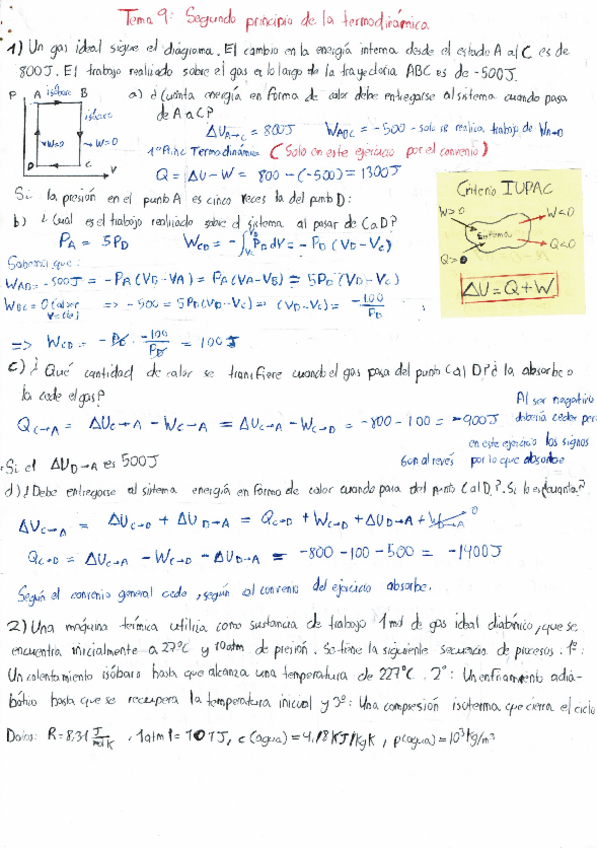 Tema 9: Segundo principio de la termodinámica
1) Un gas ideal sigue el diagrama. El cambio en la energía interna desde el estado A al C es de
800J. El trabajo realizado sobre el gas a lo largo de la trayectoria ABC es de -500J.
P A isóbara B
isócora
W=0 → W=0
D C V
a) ¿Cuánta energía en forma de calor debe entregarse al sistema cuando pasa
de A a C?
ΔU A→C = 800J W ABC = -500 → solo se realiza trabajo de W A→B
1er Princ Termodinámica (Solo en este ejercicio por el convenio)
Q = ΔU - W = 800 - (-500) = 1300J
Criterio IUPAC
W>0 W<0
Sistema
Q>0 Q<0
ΔU = Q + W
Si la presión en el punto A es cinco veces la del punto D:
b) ¿Cual es el trabajo realizado sobre el sistema al pasar de C a D?
P_A = 5P_D W_CD = -∫ P_D dV = -P_D (V_D - V_C)
Sabemos que:
W_AB = -500J = -P_A (V_B - V_A) = P_A (V_A - V_B) = 5P_D (V_D - V_C)
W_BC = 0 => -500 = 5P_D (V_D - V_C) => (V_D - V_C) = -100/P_D
=> W_CD = -P_D · -100/P_D = 100J
c) ¿Qué cantidad de calor se transfiere cuando el gas pasa del punto C al D? ¿la absorbe o
la cede el gas?
Q C→A = ΔU C→A - W C→A = ΔU C→A - W C→D = -800 - 100 = -900J
Al ser negativo
debería ceder pero
en este ejercicio los signos
son al revés por lo que absorbe
Si el ΔU D→A es 500J
d) ¿Debe entregarse al sistema energía en forma de calor cuando pasa del punto C al D?. Si lo es ¿cuanta?
ΔU C→A = ΔU C→D + ΔU D→A = Q C→D + W C→D + ΔU D→A + W D→A 0
Q C→D = ΔU C→A - W C→D - ΔU D→A = -800 - 100 - 500 = -1400J
Según el convenio general cede, según el convenio del ejercicio absorbe.
2) Una máquina térmica utiliza como sustancia de trabajo 1 mol de gas ideal diatómico, que se
encuentra inicialmente a 27°C y 10atm de presión. Se tiene la siguiente secuencia de procesos. 1º:
Un calentamiento isóbaro hasta que alcanza una temperatura de 227°C. 2º: Un enfriamiento adia-
bático hasta que se recupera la temperatura inicial y 3º: Una compresión isoterma que cierra el ciclo
Datos: R = 8,31 J/mol K, 1atm l = 101J, c(agua) = 4,18KJ/kgK, ρ(agua) = 10³ kg/m³